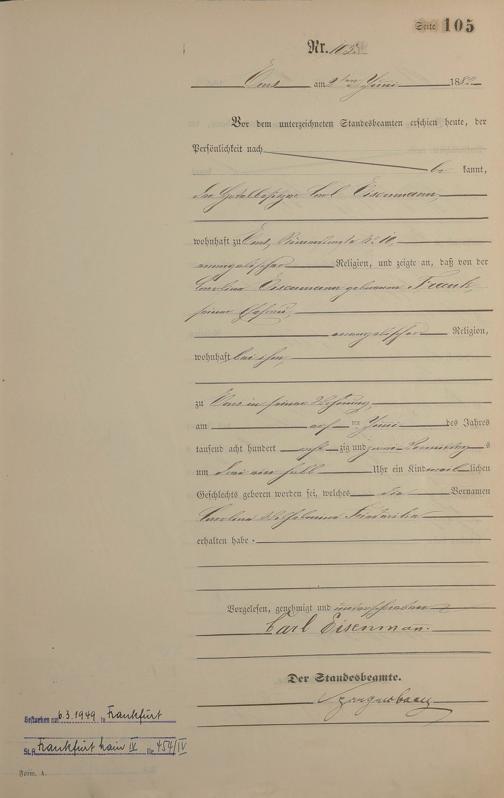 Seite 105
Nr.
Ems am Juni 188
Vor dem unterzeichneten Standesbeamten erschien heute, der
Persönlichkeit nach
be kannt,
der Hotelbesitzer Carl Eisenmann,
wohnhaft zu Ems,
evangelischer Religion, und zeigte an, daß von der
Carolina Eisenmann geborenen Frank,
seiner Ehefrau,
evangelischer Religion,
wohnhaft bei ihm,
zu Ems in seiner Wohnung,
am ten Juni des Jahres
tausend acht hundert acht zig und zwei
um drei ein halb Uhr ein Kind weiblichen
Geschlechts geboren worden sei, welches die Vornamen
Carolina Wilhelmina
erhalten habe.
Vorgelesen, genehmigt und unterschrieben
Carl Eisenman.
Der Standesbeamte.
Gestorben am 6.3.1949 in Frankfurt
St.A. Frankfurt Main IV Nr. 454/IV
Form. A.